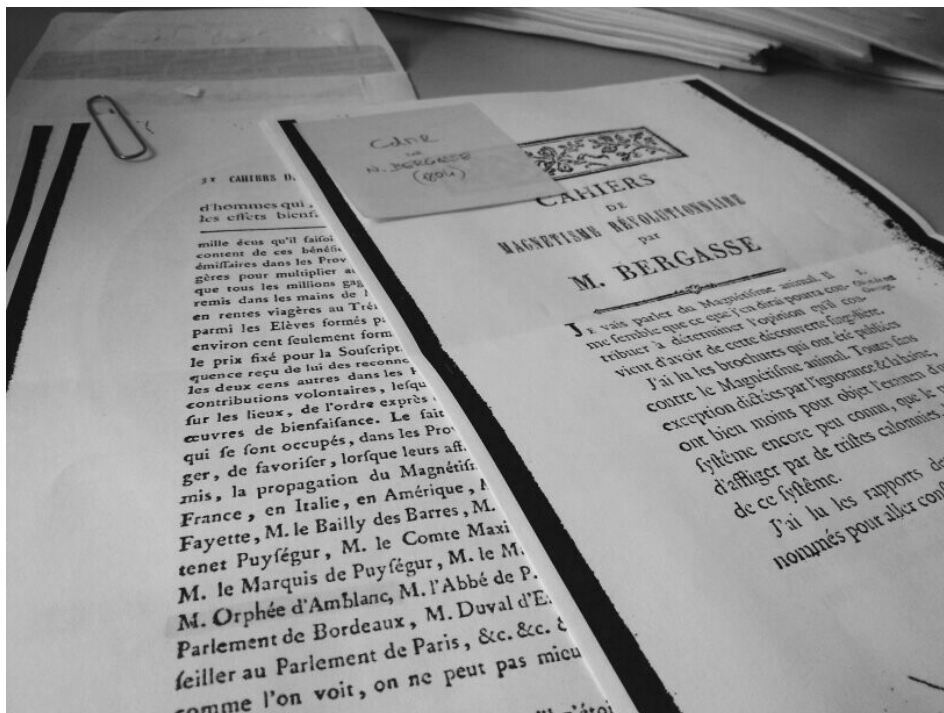 32 CAHIERS D
d'hommes qui
les effets bienf
mille écus qu'il faiſoi
content de ces bénéfi
émiſſaires dans les Prov
gères pour multiplier au
que tous les millions gag
remis dans les mains de
en rentes viagères au Tré
parmi les Elèves formés pa
environ cent ſeulement form
le prix fixé pour la Souſcript
quence reçu de lui des reconne
les deux cens autres dans les
contributions volontaires, leſqu
ſur les lieux, de l'ordre exprès
œuvres de bienfaiſance. Le fait
qui ſe ſont occupés, dans les Pro
ger, de favoriſer, lorſque leurs aff
mis, la propagation du Magnétiſ
France, en Italie, en Amérique,
Fayette, M. le Bailly des Barres, M.
tenet Puyſégur, M. le Comte Maxi
M. le Marquis de Puyſégur, M. le M.
M. Orphée d'Amblanc, M. l'Abbé de P.
Parlement de Bordeaux, M. Duval d'E
ſeiller au Parlement de Paris, &c. &c.
comme l'on voit, on ne peut pas mieu
CdMR
DE
N. BERGASSE
(804)
CAHIERS
DE
MAGNETISME RÉVOLUTIONNAIRE
par
M. BERGASSE
JE vais parler du Magnétiſme animal. Il
me ſemble que ce que j'en dirai pourra con-
tribuer à déterminer l'opinion qu'il con-
vient d'avoir de cette découverte ſingulière.
J'ai lu les brochures qui ont été publiées
contre le Magnétiſme animal. Toutes ſans
exception dictées par l'ignorance & la haine,
ont bien moins pour objet l'examen d'u
ſyſtême encore peu connu, que le
d'affliger par de triſtes calomnies,
de ce ſyſtême.
J'ai lu les rapports de
nommés pour aller conſ